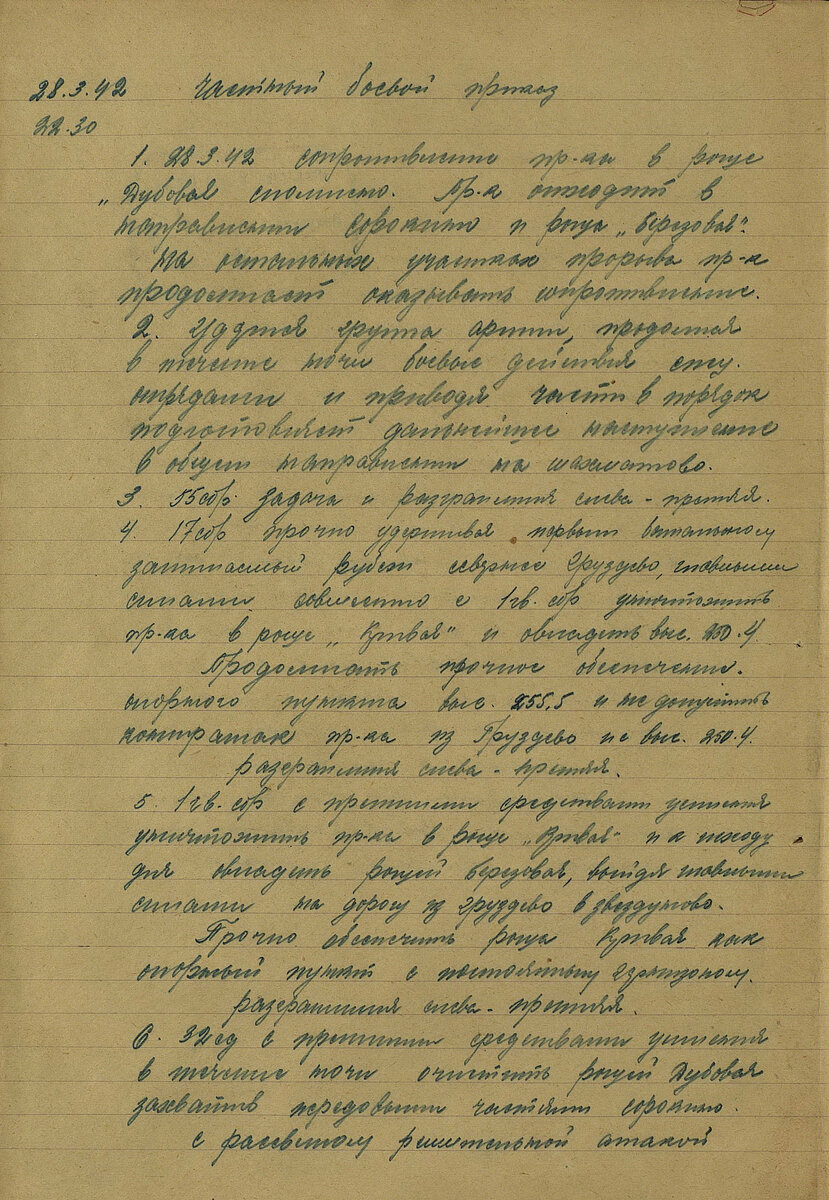 28.3.42 Частный боевой приказ
22.30
1. 28.3.42 сопротивление пр-ка в роще
„Дубовая сломлено. Пр-к отходит в
направлении Сорокино и роща „Березовая".
На остальных участках прорыва пр-к
продолжает оказывать сопротивление.
2. Ударная группа армии, продолжая
в течение ночи боевые действия спец.
отрядами и приводя части в порядок
подготовляет дальнейшее наступление
в общем направлении на Шахматово.
3. 55 сбр задача и разгранлиния слева - прежняя.
4. 17 сбр прочно удерживая первым батальоном
занимаемый рубеж севернее Груздево, главными
силами совместно с 1 гв. сбр уничтожить
пр-ка в роще и овладеть выс. 250.4.
Продолжать прочное обеспечение
опорного пункта выс. 255.5 и не допустить
контратак пр-ка из Груздево не выс. 250.4.
разгранлиния слева - прежняя.
5. 1 гв. сбр с прежними средствами усиления
уничтожить пр-ка в роще и к исходу
дня овладеть рощей Березовая, выйдя главными
силами на дорогу из Груздево в Звездуново.
Прочно обеспечить роща как
опорный пункт с постоянным гарнизоном.
разгранлиния слева - прежняя.
6. 32 сд с прежними средствами усиления
в течение ночи очистить рощей Дубовая
захватив передовыми частями Сорокино.
С рассветом решительной атакой